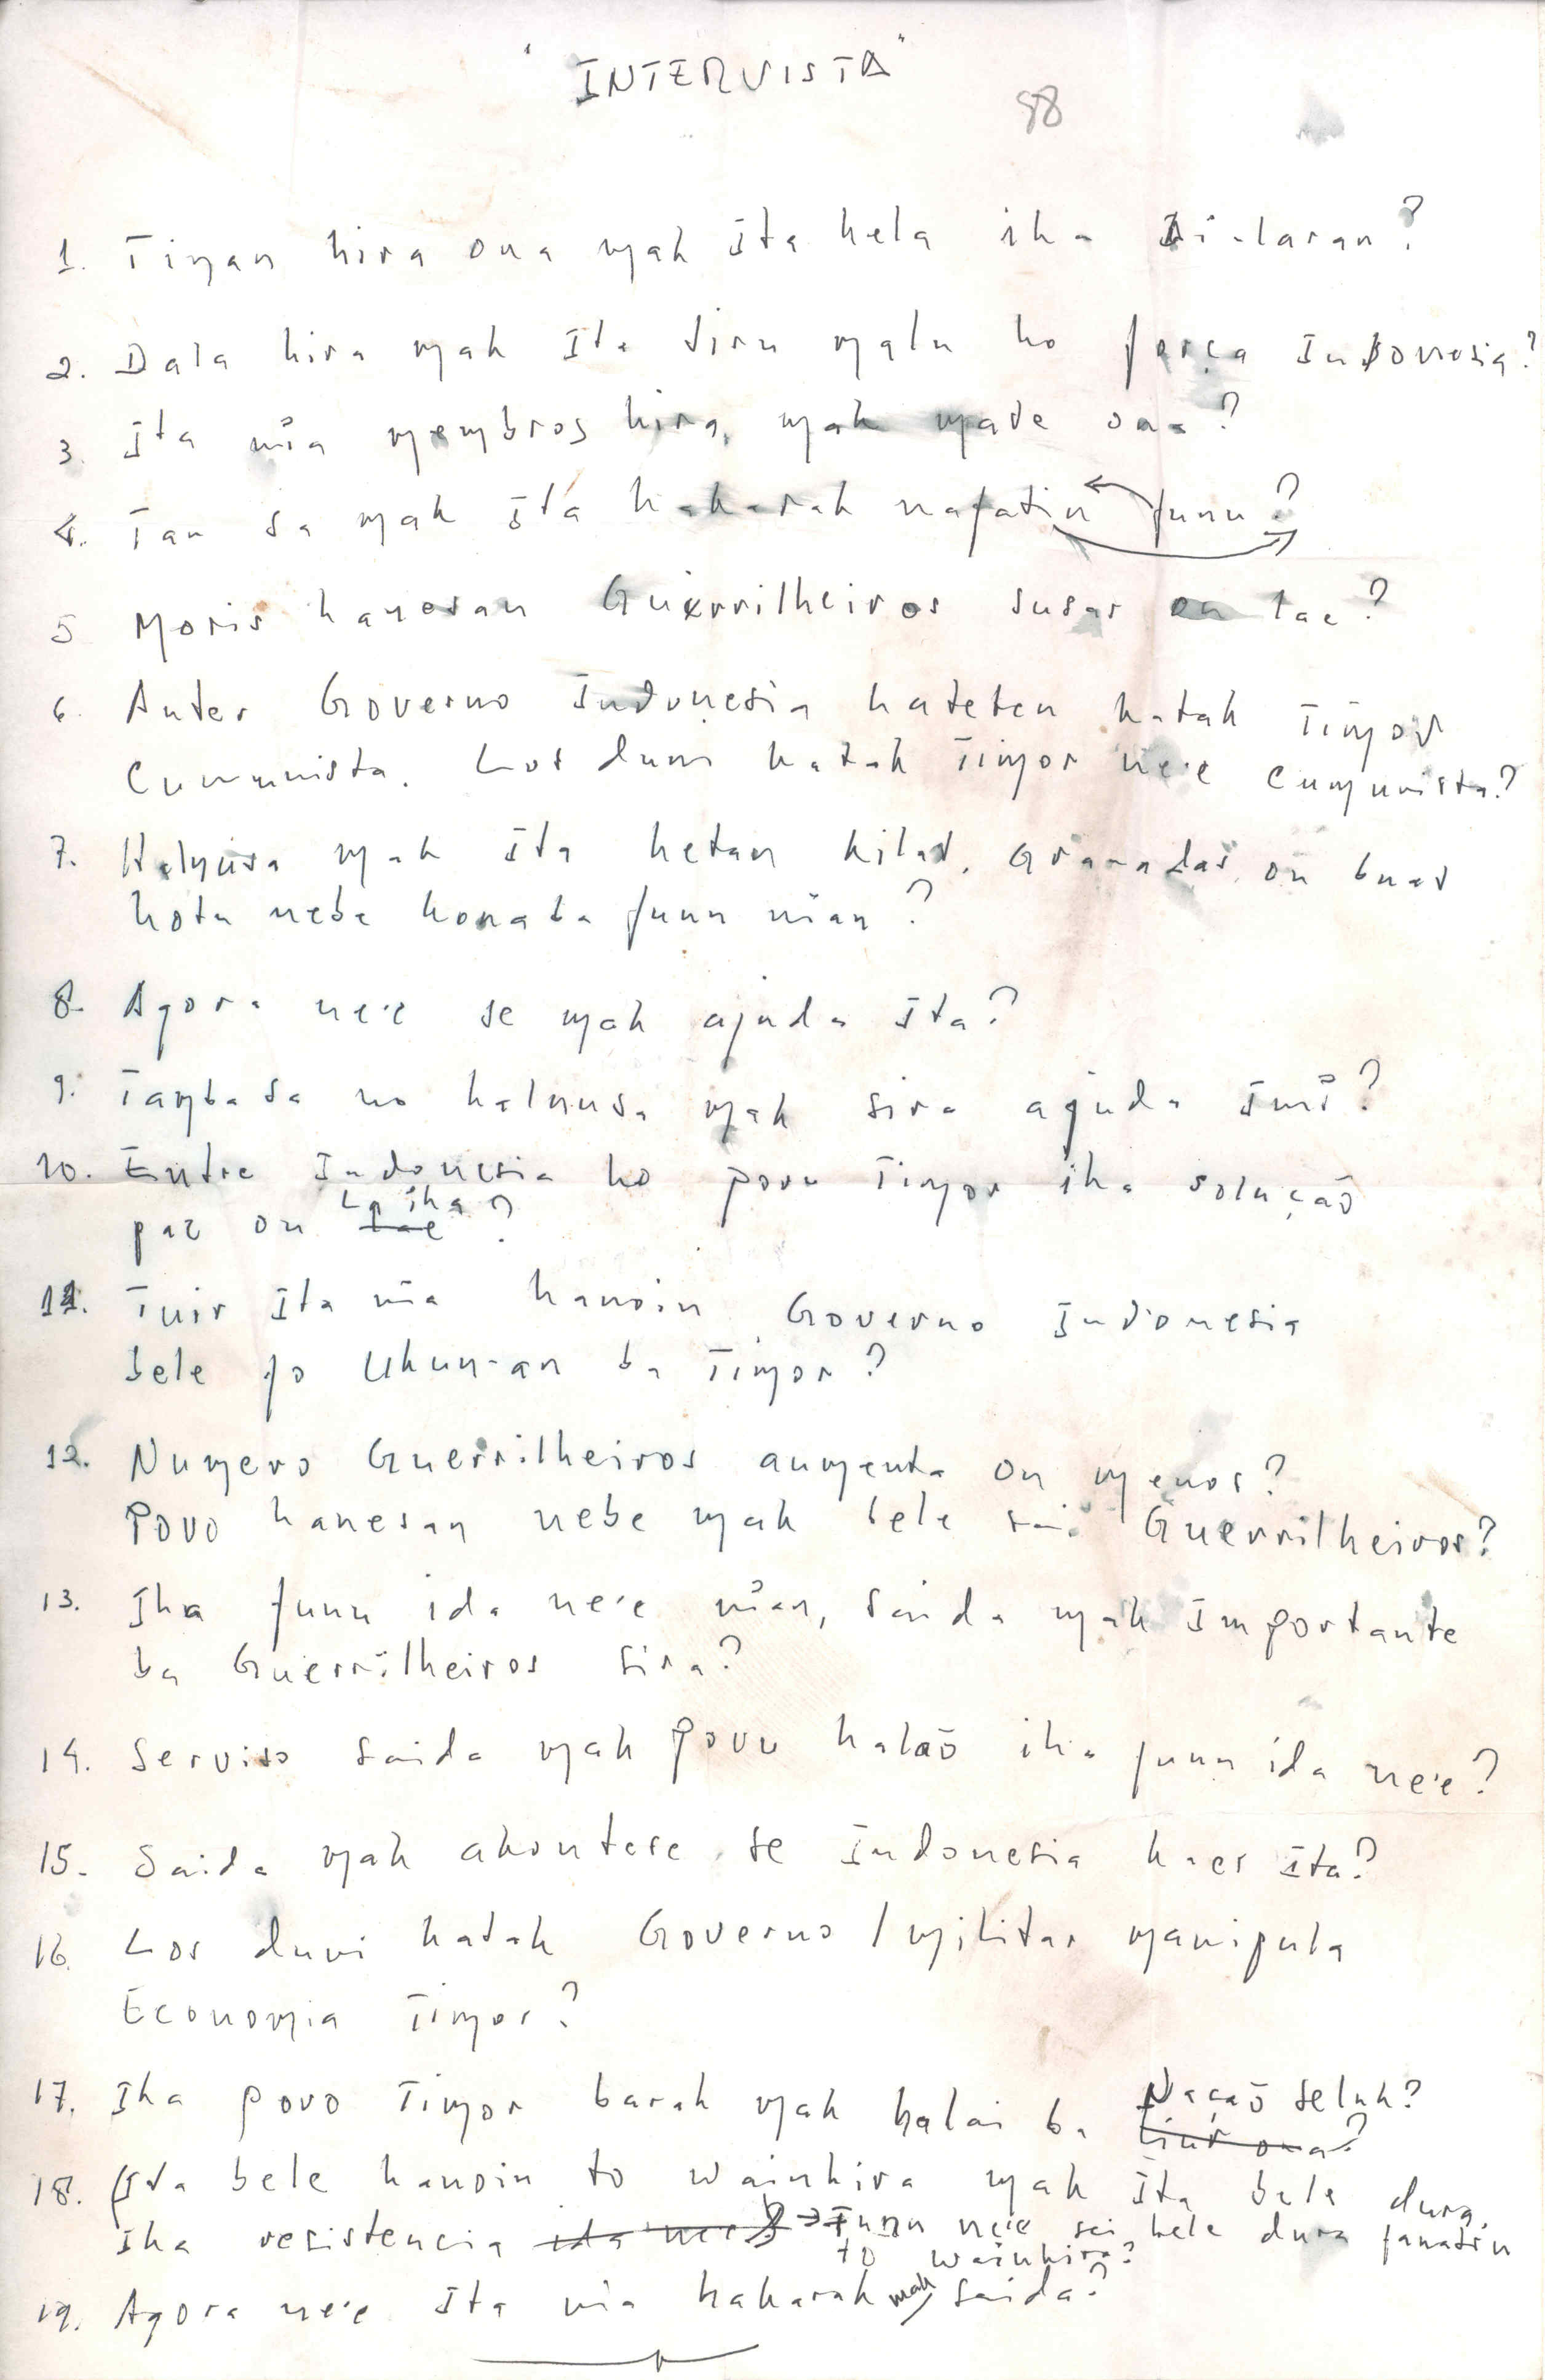 "INTERVISTA"
88
1. Tinan hira ona mak Ita hela iha Ai-laran?
2. Dala hira mak Ita tiru malu ho força Indonesia?
3. Ita nia membros hira, mak mate ona?
4. Tan sa mak Ita hakarak nafatin funu?
5 Moris hanesan Guerrilheiros susar ou lae?
6. Antes Governo Indonesia hateten katak Timor
Cumunista. Los duni katak Timor ne'e Cumunista?
7. Halnusa mak Ita hetan kilat, Granadas, ou buat
hotu nebe konaba funu nian?
8. Agora ne'e se mak ajuda Ita?
9. Tamba sa no halnusa mak sira ajuda Imi?
10. Entre Indonesia ho povu Timor iha solução
La iha
paz ou lae?
11. Tuir Ita nia hanoin Governo Indonesia
bele fo Ukun-an ba Timor?
12. Numero Guerrilheiros aumenta ou menos?
Povo hanesan nebe mak bele sai Guerrilheiros?
13. Iha funu ida ne'e nian, saida mak Importante
ba Guerrilheiros sira?
14. Serviso saida mak povu halaõ iha funu ida ne'e?
15. Saida mak akontese, se Indonesia kaer Ita?
16. Los duni katak Governo / militar manipula
Economia Timor?
Naçaõ seluk?
17. Iha povo Timor barak mak halai ba liur ona?
18. (Ita bele hanoin to wainhira mak Ita bele dura,
Iha resistencia ida ne'e? → Funu ne'e sei bele dura fanatin
to wainhira?
19. Agora ne'e Ita nia hakarak mak saida?